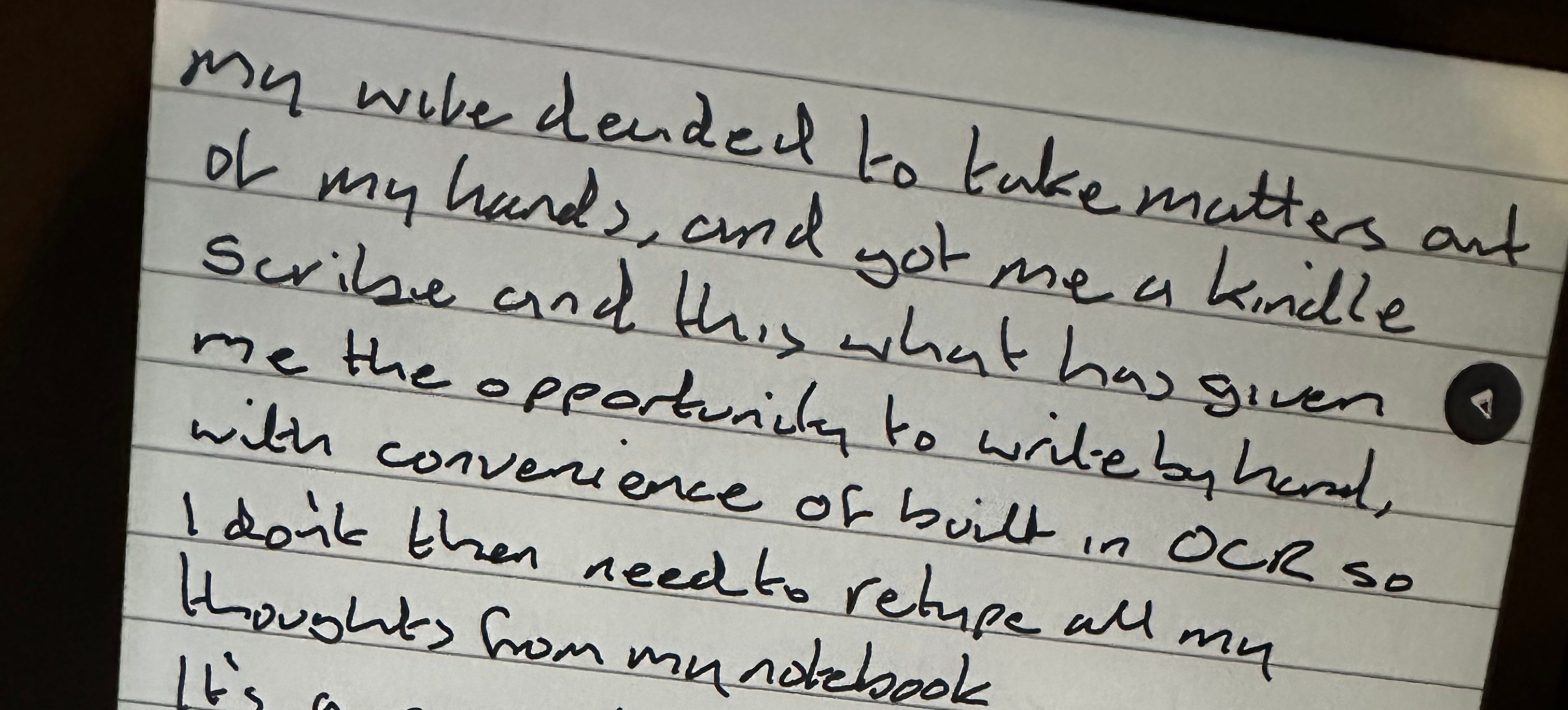 my wife decided to take matters out
of my hands, and got me a kindle
scribe and this what has given
me the opportunity to write by hand,
with convenience of built in OCR so
I don't then need to retype all my
thoughts from my notebook
It's a